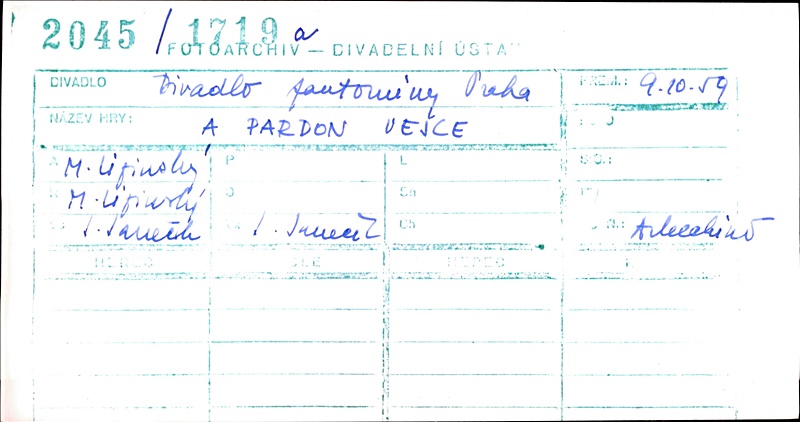 2045 / 1719 a
FOTOARCHIV — DIVADELNÍ ÚSTA
DIVADLO Divadlo fantominy Praha PREM.: 9.10.59
NÁZEV HRY: A PARDON VEJCE
M. Lipinský P L
M. Lipinský
J. Janeček J. Janeček Ch
HEREC HEREC